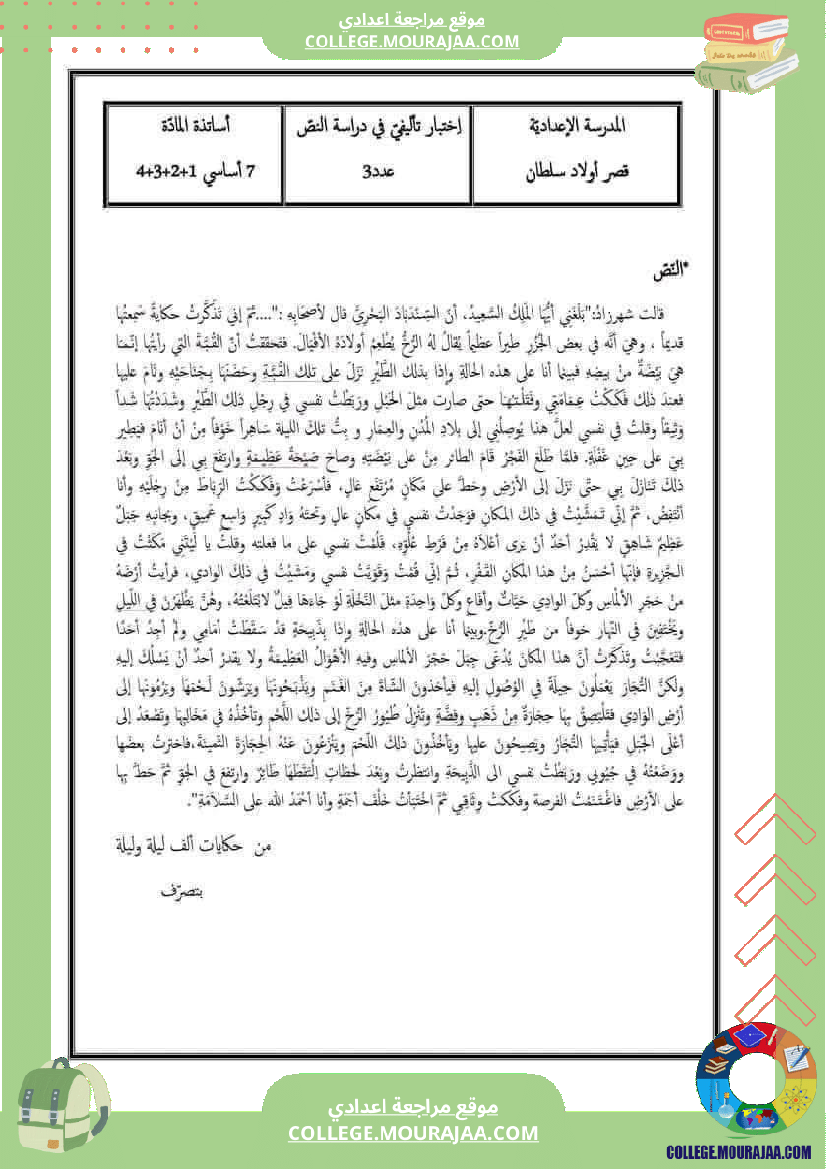 موقع مراجعة اعدادي
COLLEGE.MOURAJAA.COM
المدرسة الإعداديّة
قصر أولاد سلطان
إختبار تأليفيّ في دراسة النصّ
عدد3
أساتذة المادّة
7 أساسي 1+2+3+4
*النّصّ
قالت شهرزادُ:"بَلَغَنِي أيُّهَا الملِكُ السَّعِيدُ، أنّ السِّنْدَبَادَ البَحْرِيَّ قال لأصحَابِهِ :"....ثمّ إني تَذَكَّرتُ حكايةً سَمِعتُهَا
قديماً ، وهيَ أنَّه في بعض الجُزُرِ طيراً عظيماً يُقَالُ لهُ الرُّخُّ يُطْعِمُ أولادَهُ الأفْيَالَ. فتحققتُ أنّ القُبَّةَ التي رأيتُها إنّما
هيَ بَيْضَةٌ منْ بيضِهِ فبينما أنا على هذه الحالةِ وإذا بذلك الطَّيْرِ نزَلَ على تلك القُبَّةِ وحَضَنَهَا بِجَنَاحَيْهِ ونَامَ عليها
فعندَ ذلك فَكَكْتُ عِمَامَتِي وفَتَلْتُهَا حتى صارت مثلَ الحَبْلِ ورَبَطْتُ نفسي في رِجْلِ ذلك الطَّيْرِ وشَدَدْتُهَا شَداًّ
وَثيقاً وقلتُ في نفسي لعلَّ هذا يُوصِلُنِي إلى بلادِ المُدُنِ والعِمَارِ و بِتُّ تلكَ الليلةَ سَاهِراً خَوْفاً مِنْ أنْ أنَامَ فيَطِيرَ
بِيَ على حِينِ غَفْلَةٍ. فلمَّا طَلَعَ الفَجْرُ قَامَ الطائر مِنْ على بَيْضَتِهِ وصاحَ صَيْحَةً عَظِيمَةً وارتفعَ بِي إلى الجَوِّ وبَعْدَ
ذلكَ تَنَازَلَ بِي حتَّى نَزَلَ إلى الأرْضِ وحَطَّ على مَكَانٍ مُرْتَفَعٍ عَالٍ، فأسْرَعْتُ وَفَكَكْتُ الرِّبَاطَ مِنْ رِجْلَيْهِ وأنا
أنْتَفِضُ، ثمّ إنّي تَمَشَّيْتُ في ذلكَ المكَانِ فوَجَدْتُ نفسي في مكانٍ عالٍ وتَحتَهُ وَادٍ كَبِيرٍ وَاسِعٍ عَمِيقٍ، وبجَانِبِهِ جَبَلٌ
عَظِيمٌ شَاهِقٍ لا يَقْدِرُ أحَدٌ أنْ يَرَى أعْلاَهُ مِنْ فَرْطِ عُلُوِّهِ، فَلُمْتُ نفسي على ما فعلته وقلتُ يا لَيْتَنِي مَكَثْتُ في
الجَزِيرةِ فإنّها أحْسَنُ مِنْ هذا المكَانِ القَفْرِ، ثُمَّ إنّي قُمْتُ وَقَوَّيْتُ نفسي ومَشَيْتُ في ذلكَ الوادي، فرأيتُ أرْضَهُ
منْ حَجَرِ الألْمَاسِ وكلّ الوادِي حَيَّاتٌ وأفَاعٍ وكلّ وَاحِدَةٍ مثلَ النَّخْلَةِ لَوْ جَاءَهَا فِيلٌ لابْتَلَعَتْهُ، وهُنَّ يَظْهَرْنَ في اللّيلِ
ويَخْتَفِينَ في النّهارِ خوفاً من طَيْرِ الرُّخِّ.وبينما أنا على هذه الحالةِ وإذَا بِذَبِيحَةٍ قدْ سَقَطَتْ أمَامِي ولمْ أجِدْ أحَدًا
فتَعَجَّبْتُ وتَذَكَّرْتُ أنَّ هذا المكَانَ يُدْعَى جَبَلَ حَجَرِ الألماسِ وفيهِ الأهْوَالُ العَظِيمَةُ ولا يقدرُ أحدٌ أنْ يَسْلُكَ إليهِ
ولكنَّ التُّجَّارَ يَعْمَلُونَ حِيلَةً في الوُصُولِ إليهِ فيأخذونَ الشّاةَ مِنَ الغَنَمِ ويَذْبَحُونَهَا ويَرشّونَ لَحْمَهَا ويَرْمُونَها إلى
أرْضِ الوَادِي فَتَلْتَصِقُ بِهَا حِجَارَةٌ مِنْ ذَهَبٍ وفِضَّةٍ وتَنْزِلُ طُيُورُ الرُّخِّ إلى ذلك اللَّحْمِ وتَأخُذُهُ في مَخَالِبِهَا وتَصْعَدُ إلى
أعْلَى الجَبَلِ فَيَأْتِيهَا التُّجَّارُ ويَصِيحُونَ عليها ويَأخُذُونَ ذلكَ اللّحْمَ ويَنْزِعُونَ عَنْهُ الحِجَارَةَ الثّمِينَةَ،فاخترْتُ بعضَها
ووَضَعْتُهُ في جُيُوبِي ورَبَطْتُ نفسي الى الذَّبِيحَةِ وانتظرتُ وبَعْدَ لحظَاتٍ اِلْتَقَطَهَا طَائِرٌ وارتفعَ في الجَوِّ ثمَّ حَطَّ بِها
على الأرْضِ فاغْتَنَمْتُ الفرصة وفككتُ وِثَاقِي ثمَّ اخْتَبَأتُ خَلْفَ أجَمَةٍ وأنا أحْمَدُ الله على السَّلاَمَةِ".
من حكايات ألف ليلة وليلة
بتصرّف
موقع مراجعة اعدادي
COLLEGE.MOURAJAA.COM
COLLEGE.MOURAJAA.COM